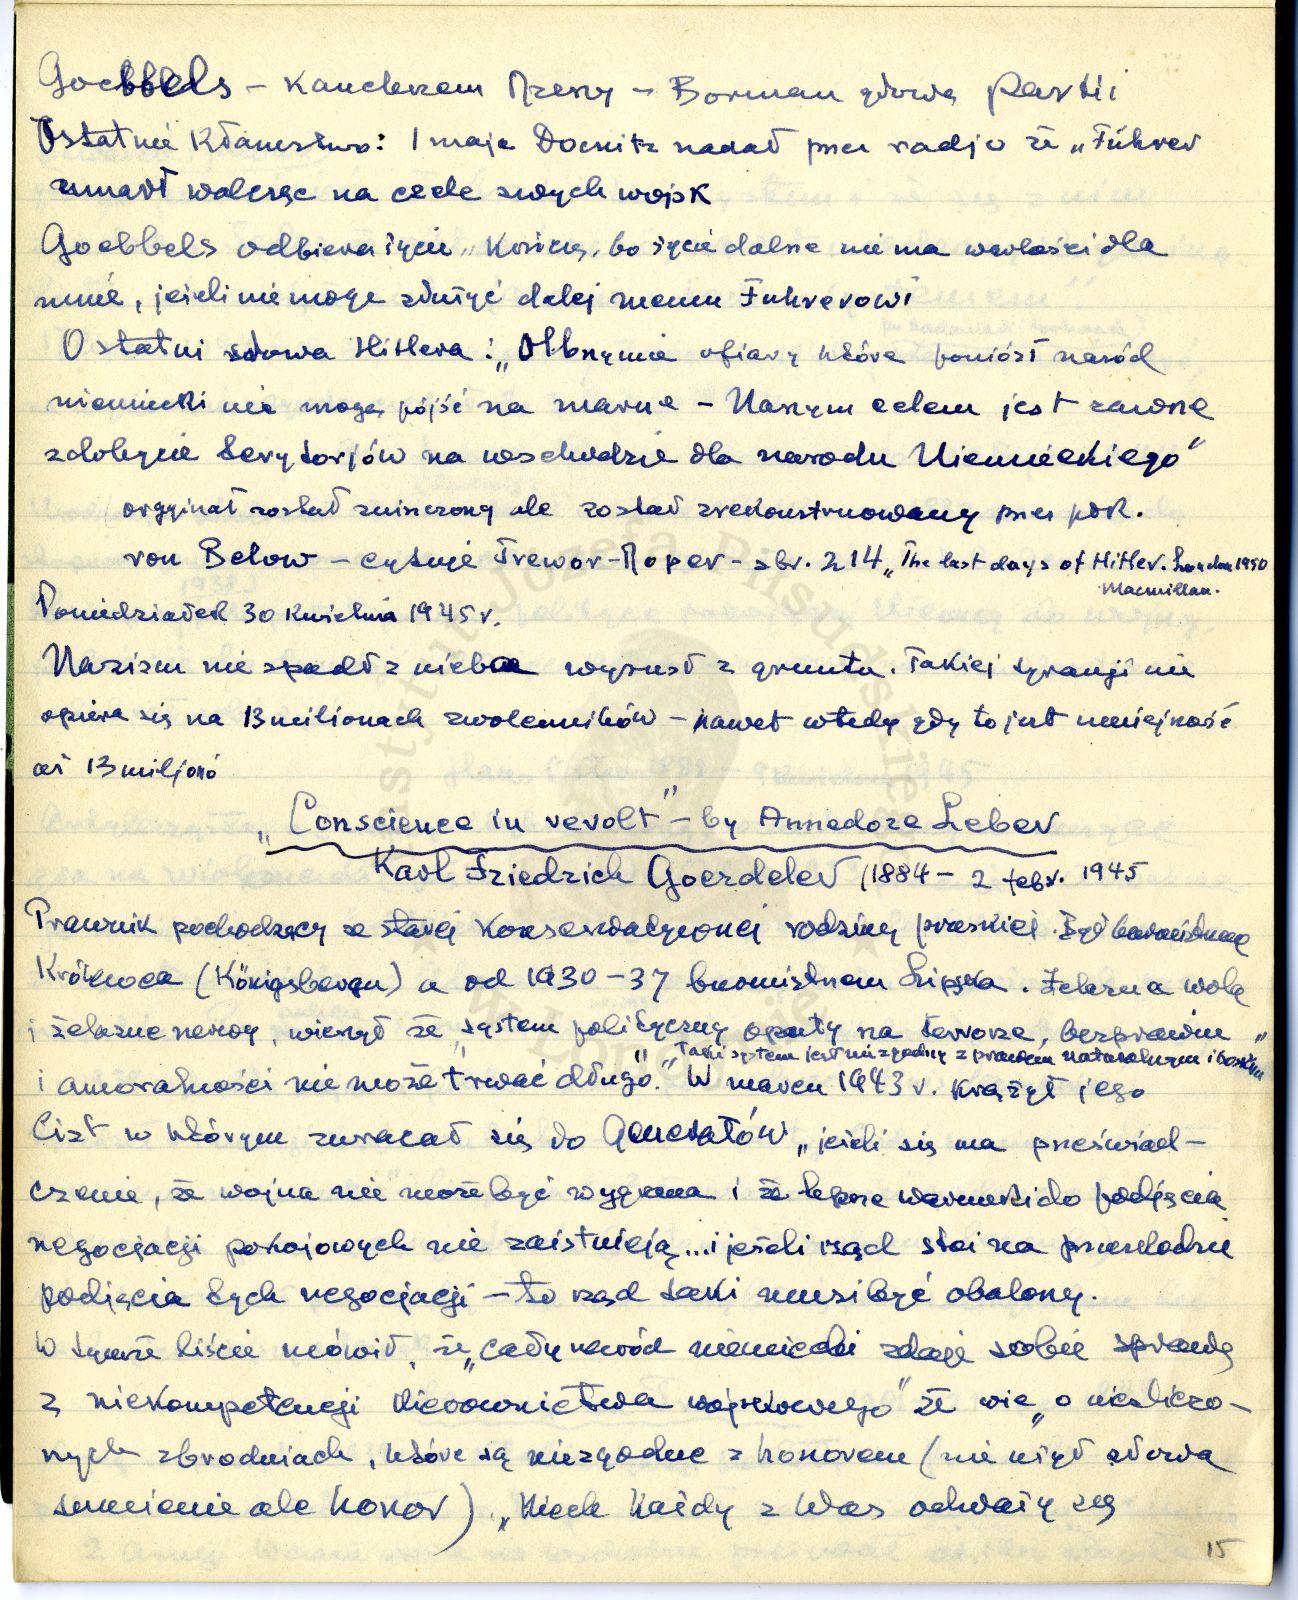 Goebbels – Kanclerzem Rzeszy – Borman głową Partii
Ostatnie kłamstwo: 1 maja Doenitz nadał przez radjo że „Führer
umarł walcząc na czele swych wojsk
Goebbels odbiera życie „Kończę, bo życie dalsze nie ma wartości dla
mnie, jeżeli nie mogę służyć dalej memu Fuhrerowi
Ostatni słowa Hitlera: „Olbrzymie ofiary które poniósł naród
niemiecki nie mogą pójść na marne – Naszym celem jest zawsze
zdobycie terytorjów na wschodzie dla narodu Niemieckiego"
orgyinał został zniszczony ale został zrekonstruowany przez płk.
von Below – cytuje Trevor-Roper – str. 214 „The last days of Hitler. London 1950
Macmillan.
Poniedziałek 30 kwietnia 1945 r.
Nazizm nie spadł z nieba wyrusł z gruntu. Takiej tyranji nie
opiera się na 13 milionach zwolenników – nawet wtedy gdy to jest mniejność
aż 13 miljonó
„Conscience in revolt" – by Annedore Leber
Karl Friedrich Goerdeler (1884 – 2 febr. 1945
Prawnik pochodzący ze starej konserwatywnej rodziny pruskiej. Był burmistrzem
Królewca (Königsbergu) a od 1930–37 burmistrzem Lipska. Żelazna wola
i żelazne nerwy, wierzył że „system polityczny oparty na terrorze, bezprawiu
i amoralności nie może trwać długo." „Taki system jest niezgodny z prawem naturalnym i boskim"
W marcu 1943 r. krążył jego
list w którym zwracał się do Generałów „jeżeli się ma przeświad–
czenie, że wojna nie może być wygrana i że lepsze warunki do podjęcia
negocjacji pokojowych nie zaistnieją... i jeżeli rząd stoi na przeszkodzie
podjęcia tych negocjacji – to rząd taki musi być obalony.
W tymże liście mówił, że „cały naród niemiecki zdaje sobie sprawę
z niekompetencji kierownictwa wojskowego" że wie „o nieliczo–
nych zbrodniach, które są niezgodne z honorem (nie użył słowa
sumienie ale honor). „Niech każdy z Was odważy się
15